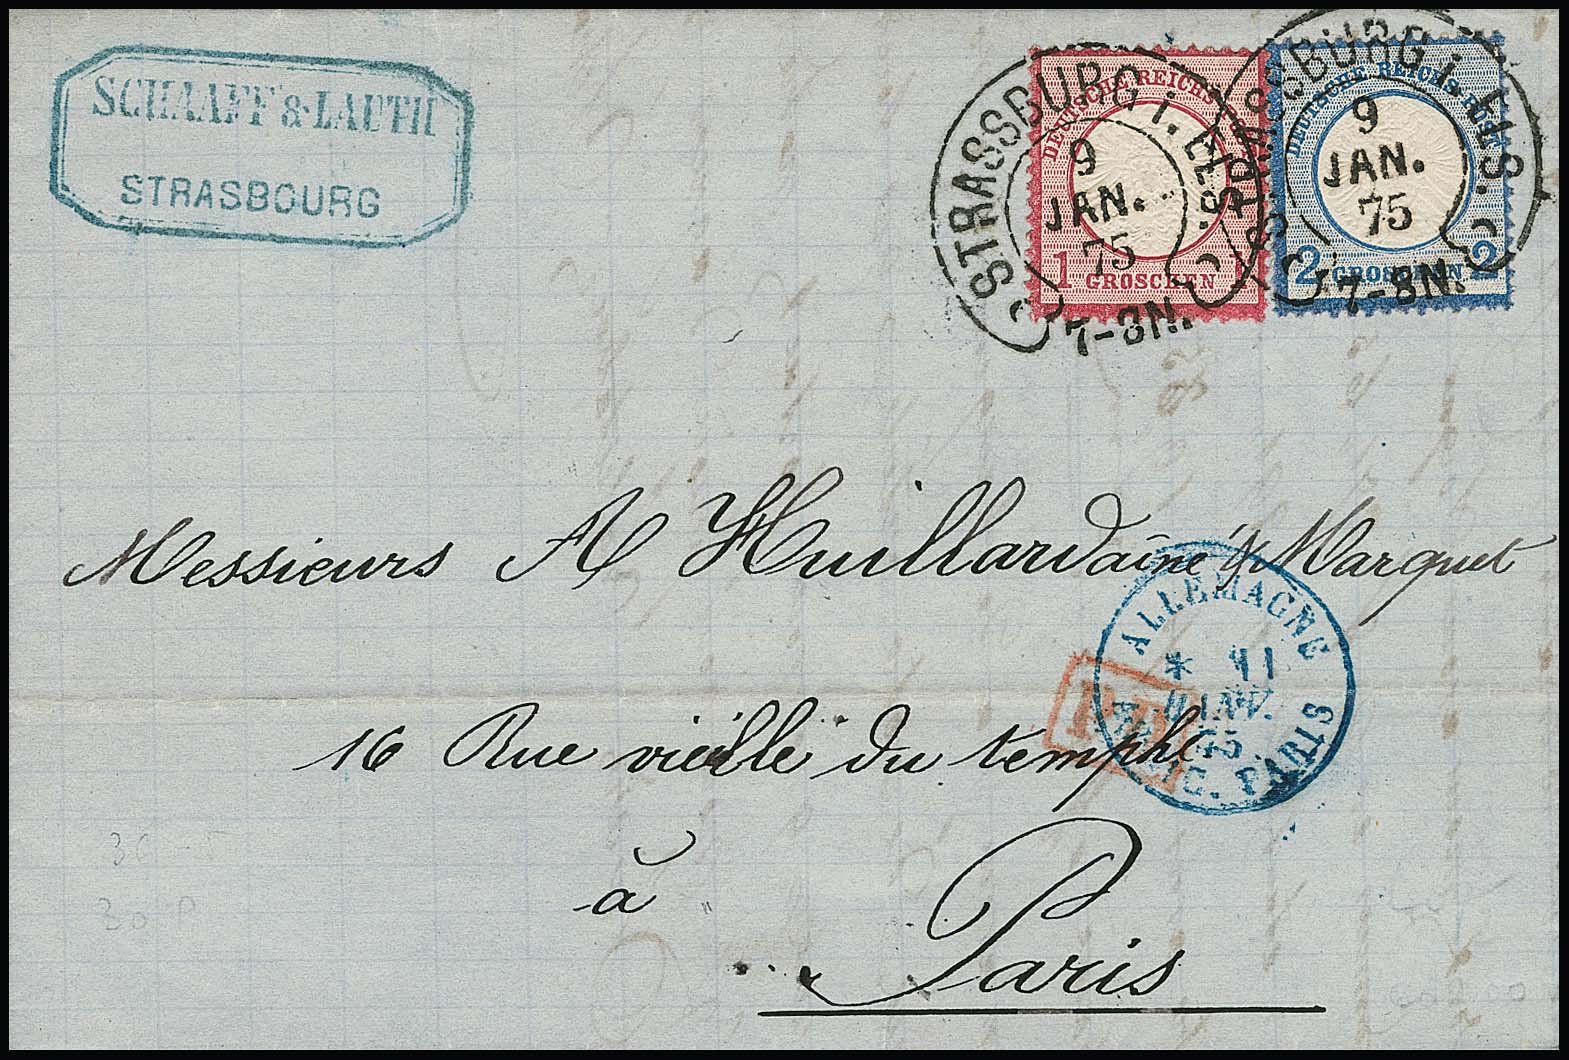 SCHAAFF & LAUTH
STRASBOURG
STRASSBURG i. ELS.
9
JAN.
75
7-8N.
DEUTSCHE REICHS-POST
1 GROSCHEN 1
STRASSBURG i. ELS.
9
JAN.
75
7-8N.
DEUTSCHE REICHS-POST
2 GROSCHEN 2
Messieurs A Huillard aîné & Marquet
ALLEMAGNE
* 11
JANV.
75
PARIS
P.D.
16 Rue vieille du temple
à
Paris